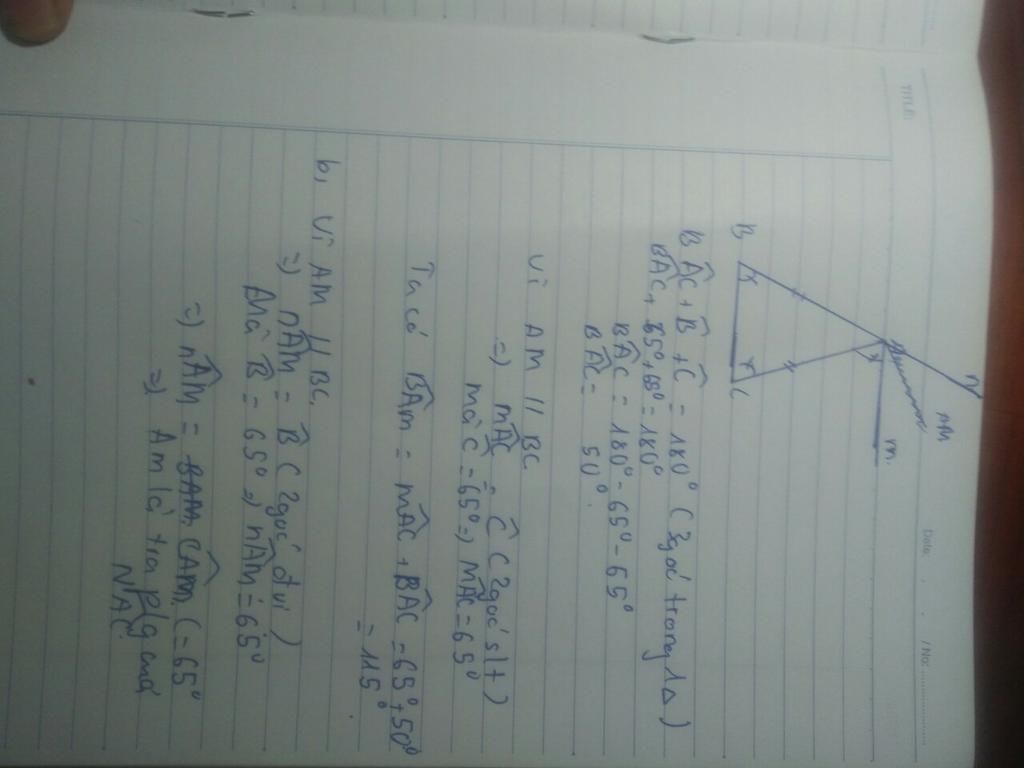 TITLE:
Date: / / No:
n
m
B
C
BÂC + B̂ + Ĉ = 180° (3 góc trong 1 Δ)
BÂC + 65° + 65° = 180°
BÂC = 180° - 65° - 65°
BÂC = 50°.
Vì AM // BC
=) mÂC = Ĉ (2 góc slt)
mà Ĉ = 65° =) MÂC = 65°
Ta có BÂm = mÂC + BÂC = 65° + 50°
= 115°
b, Vì AM // BC.
=) nÂm = B̂ (2 góc đvi)
Mà B̂ = 65° =) nÂm = 65°
=) nÂm = CÂm (= 65°
=) Am là tia p/g của
NÂC